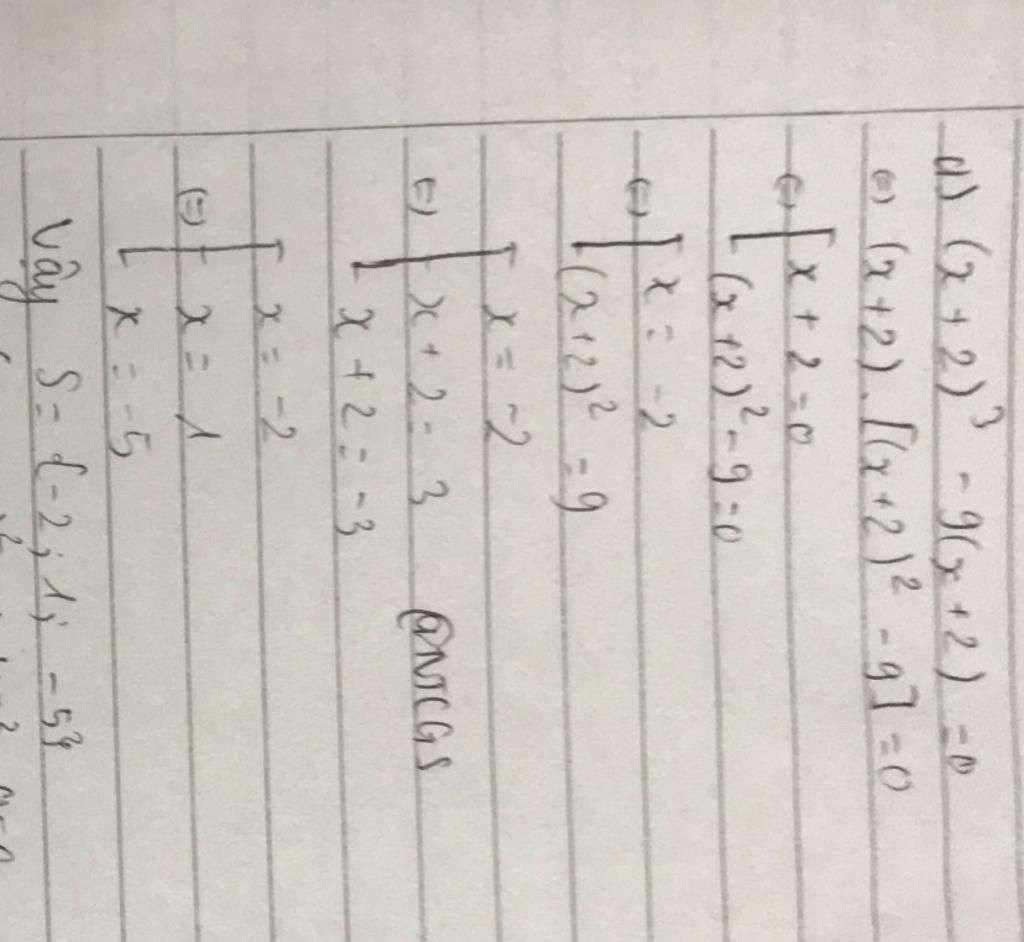 a) (x+2)³ - 9(x+2) = 0
⇔ (x+2).[(x+2)² - 9] = 0
⇔ [ x + 2 = 0
(x+2)² - 9 = 0
⇔ [ x = -2
(x+2)² = 9
x = -2
⇔ [ x + 2 = 3 @NTCGS
x + 2 = -3
x = -2
⇔ [ x = 1
x = -5
Vậy S = {-2; 1; -5}